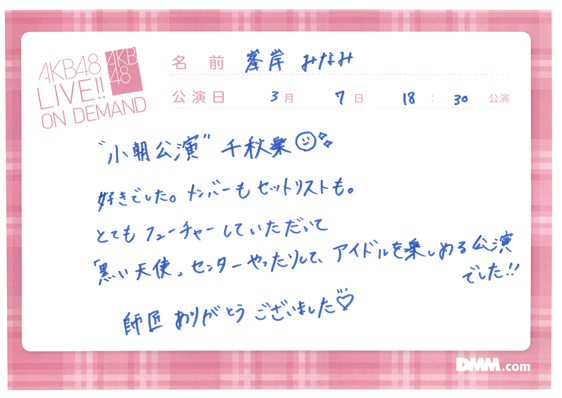 AKB48
LIVE!!
ON DEMAND
AKB
48
名 前 峯岸 みなみ
公演日 3月 7日 18 : 30 公演
"小朝公演" 千秋楽
好きでした。メンバーもセットリストも。
とてもフューチャーしていただいて
「黒い天使」センターやったりして、アイドルを楽しめる公演
でした!!
師匠 ありがとうございました♡
DMM.com